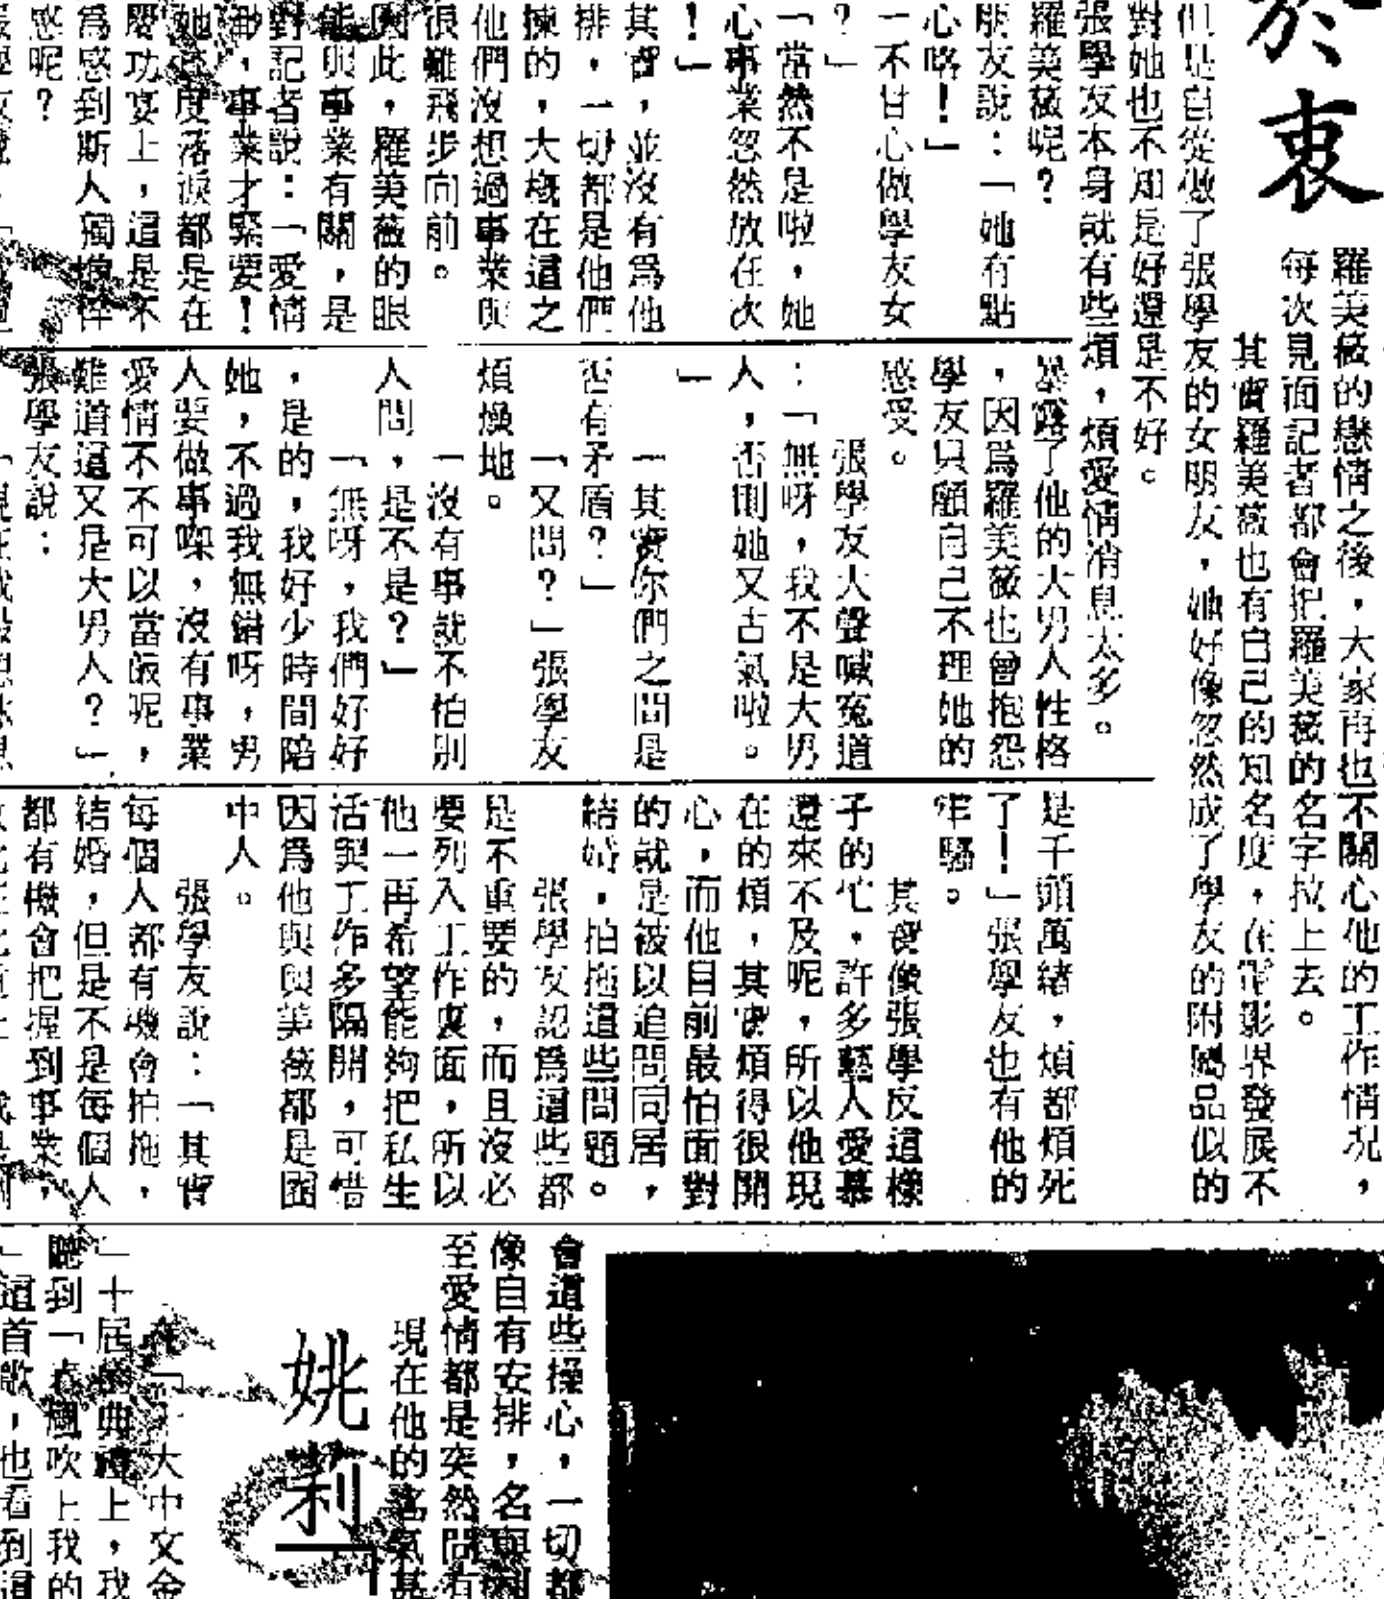 於衷
羅美薇的戀情之後，大家再也不關心他的工作情况，
每次見面記者都會把羅美薇的名字拉上去。
其實羅美薇也有自己的知名度，在電影界發展不
但是自從做了張學友的女朋友，她好像忽然成了學友的附屬品似的
對她也不知是好還是不好。
張學友本身就有些煩，煩愛情消息太多。
羅美薇呢？
朋友說：「她有點
心咯！」
一不甘心做學友女
？」
「當然不是啦，她
心事業忽然放在次
！」
其實，並沒有爲他
排，一切都是他們
揀的，大概在這之
他們沒想過事業與
很難飛步向前。
因此，羅美薇的眼
能與事業有關，是
對記者說：「愛情
，事業才緊要！
她 度落淚都是在
慶功宴上，這是不
爲感到斯人獨憔悴
感呢？
暴露了他的大男人性格
，因爲羅美薇也曾抱怨
學友只顧自己不理她的
感受。
張學友大聲喊冤道
：「無呀，我不是大男
人，否則她又古氣啦。
」
「其實你們之間是
否有矛盾？」
「又問？」張學友
煩燥地。
「沒有事就不怕別
人問，是不是？」
「無呀，我們好好
，是的，我好少時間陪
她，不過我無錯呀，男
人要做事㗎，沒有事業
愛情不不可以當飯呢，
難道這又是大男人？」
張學友說：
是千頭萬緒，煩都煩死
了！」張學友也有他的
牢騷。
其實像張學反這樣
子的忙，許多藝人愛慕
還來不及呢，所以他現
在的煩，其實煩得很開
心，而他目前最怕面對
的就是被以追問同居，
結婚，拍拖這些問題。
張學友認爲這些都
是不重要的，而且沒必
要列入工作裏面，所以
他一再希望能夠把私生
活與工作多隔開，可惜
因爲他與與美薇都是圈
中人。
張學友說：「其實
每個人都有機會拍拖，
結婚，但是不是每個人
都有機會把握到事業，
會這些操心，一切都
像自有安排，名與利
至愛情都是突然間有
現在他的
姚莉
大中文金
十屆 典禮上，我
聽到「春風吹上我的
」這首歌，也看到這